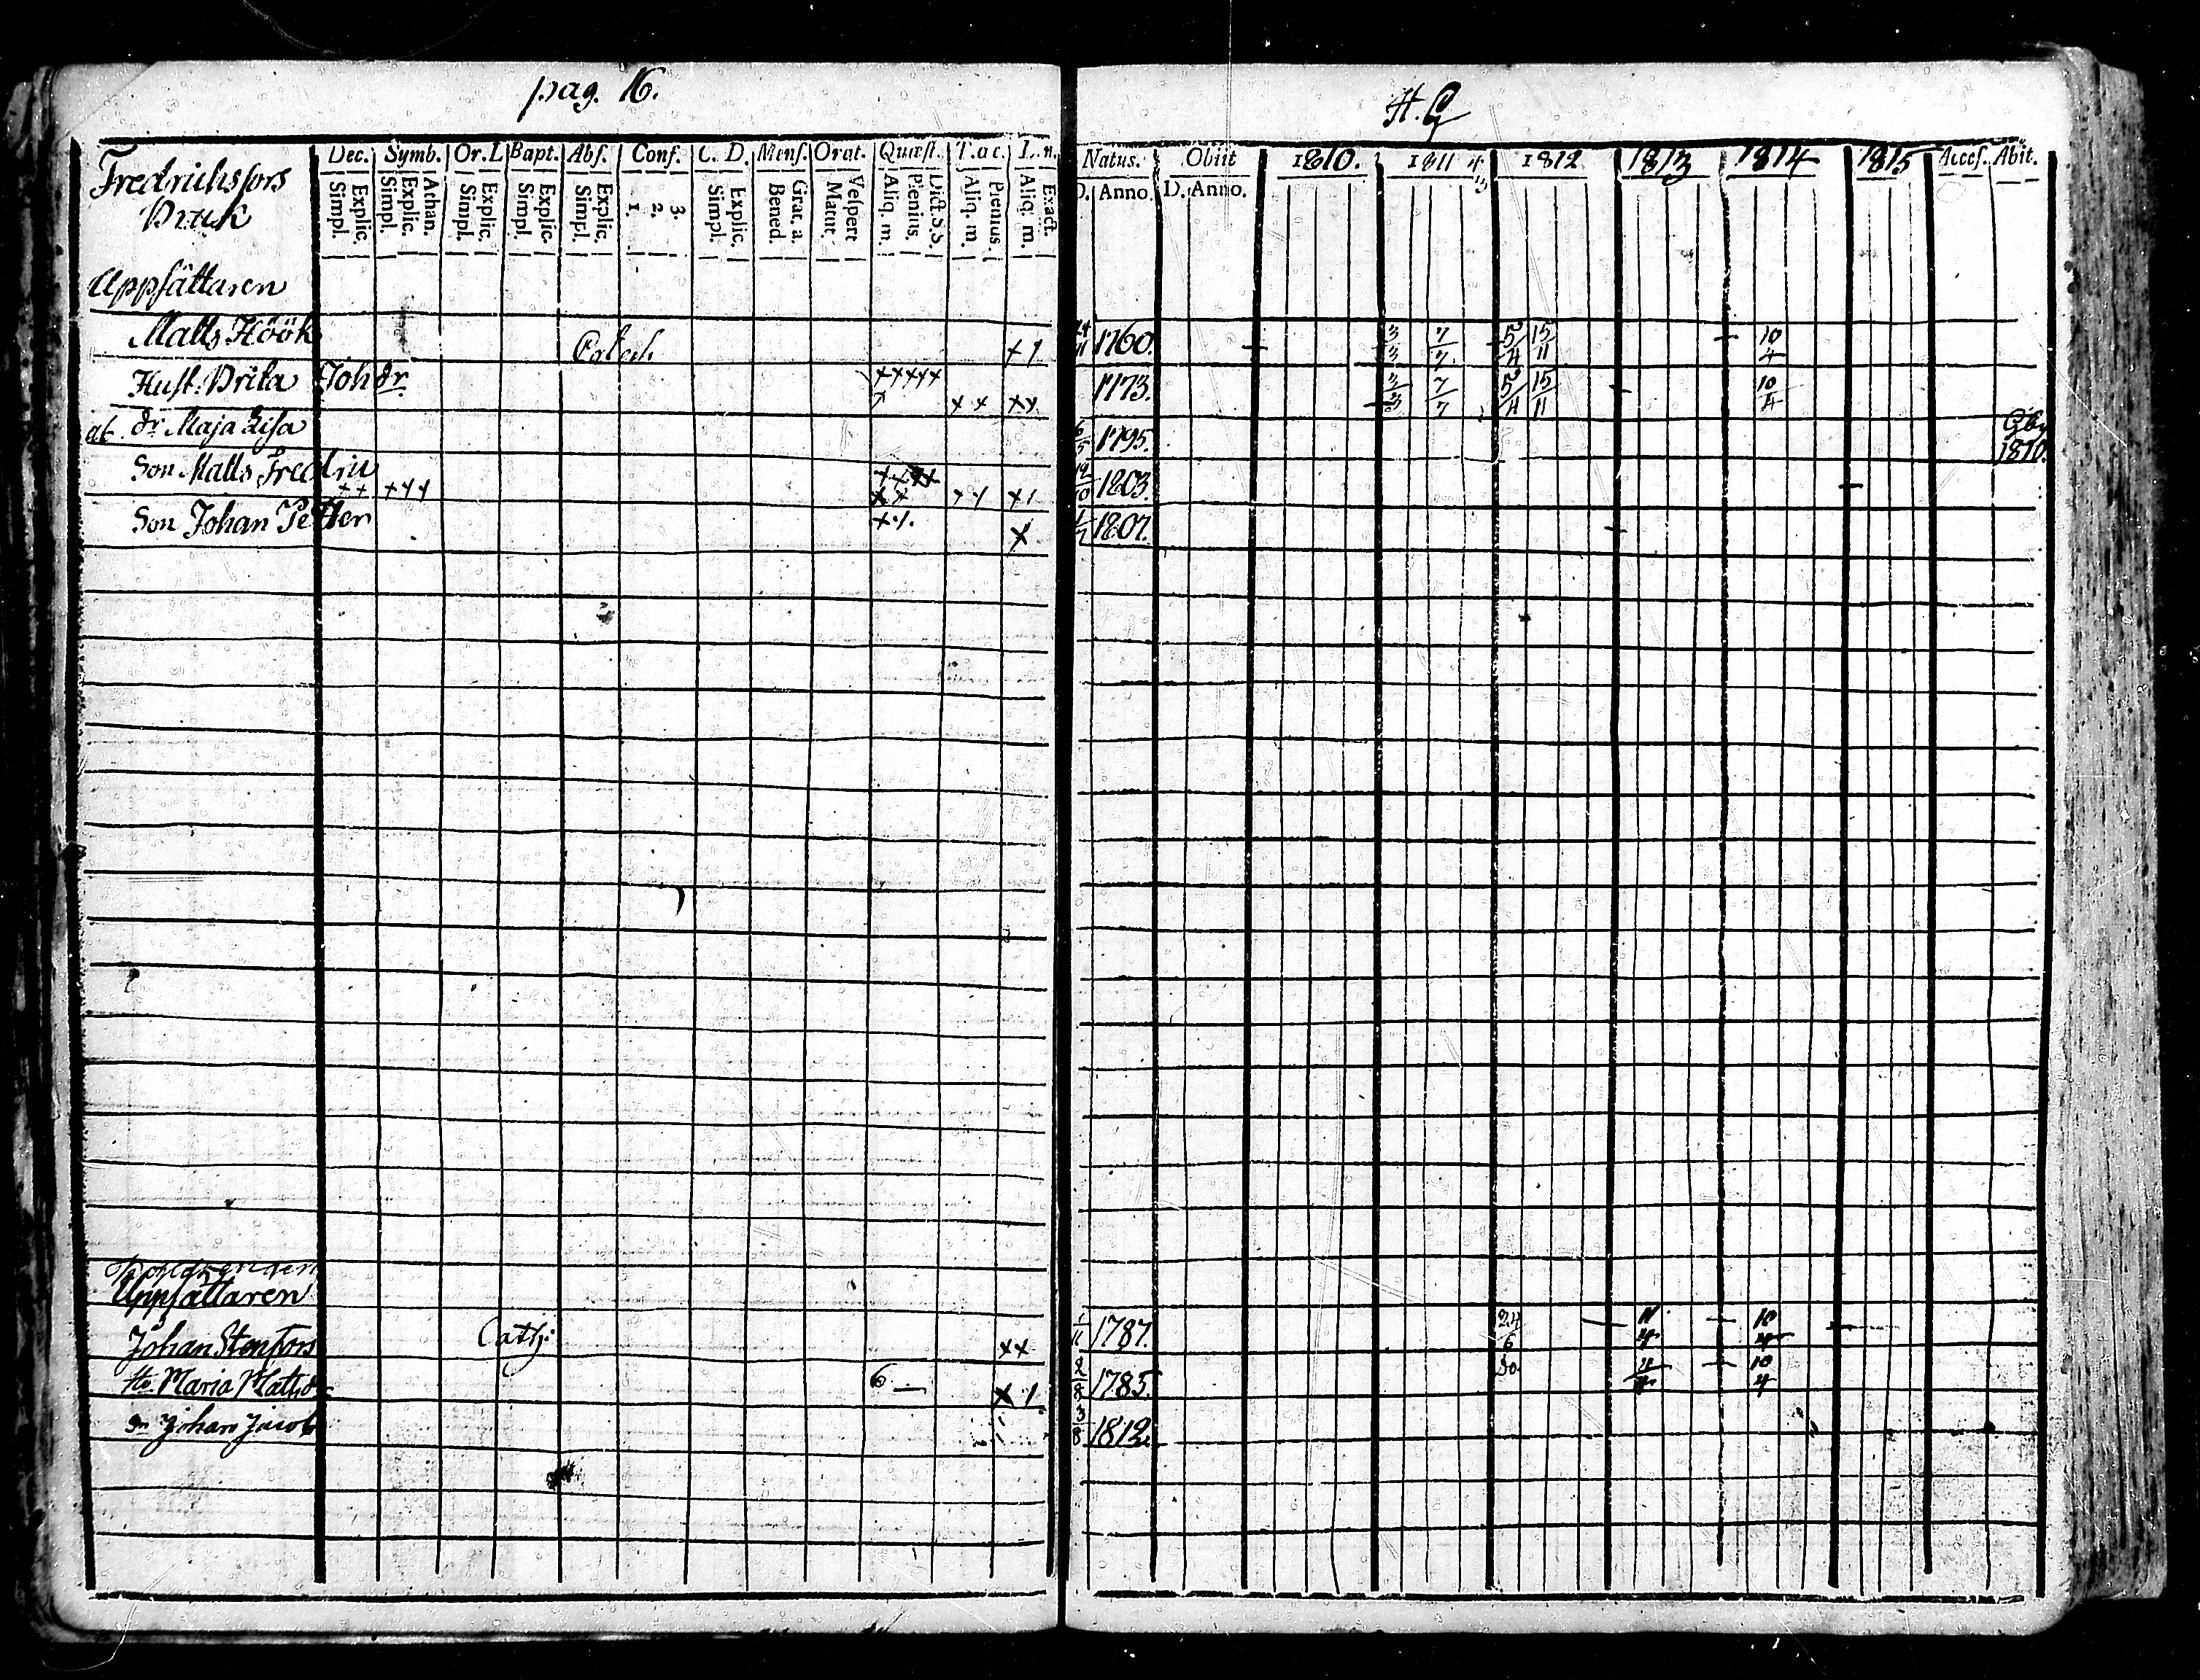 pag. 16.
H. G
Fredrichsfors
Bruk
Dec. Symb. Or. L Bapt. Abs. Conf. C. D. Mens. Orat. Quæst. T. œc. L. n.
Simpl. Explic. Simpl. Explic. Athan. Simpl. Explic. Simpl. Explic. Simpl. Explic. 1. 2. 3. Simpl. Explic. Bened. Grat. a. Matut. Vespert Aliq. m. Plenius. Dict. S.S. Aliq. m. Plenius. Aliq. m. Exact.
Natus. Obiit 1810. 1811 1812 1813 1814 1815 Acces. Abit.
D. Anno. D. Anno.
Uppsättaren
Matts Höök 1760. 3/3 7/7 5/4 15/11 10/4
Hust. Brita Joh dr 1773. 3/3 7/7 5/4 15/11 10/4
dr Maja Lisa 6/5 1795. 1810.
Son Matts Fredric 1803.
Son Johan Petter 1807.
Uppsättaren
Johan Stenfors Cath: 1/11 1787. 24/6 11/4 10/4
Maria Matsd 2/8 1785. 4/4 10/4
Sn Johan Jacob 3/8 1812.